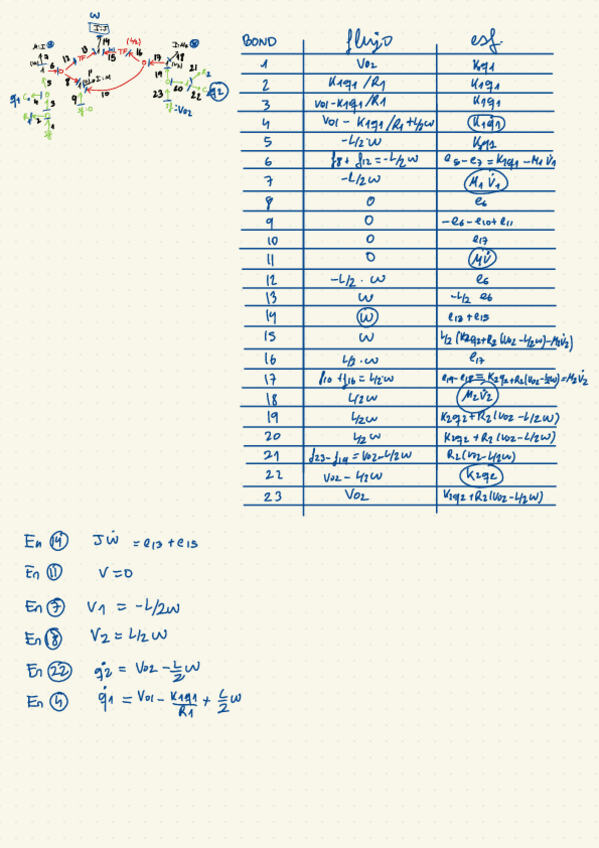 BOND flujo esf.
1 V02 K1q1
2 K1q1/R1 K1q1
3 V01-K1q1/R1 K1q1
4 V01 - K1q1/R1+L/2w K1q1
5 -L/2·w K1q1
6 f8+ f12=-L/2w e5-e7=K1q1-M1V̇1
7 -L/2w M1V̇1
8 0 e6
9 0 -e6-e10+e11
10 0 e17
11 0 MV̇
12 -L/2·w e6
13 w -L/2 e6
14 w e13+e15
15 w L/2(K2q2+R2(V02-L/2w)-M2V̇2)
16 L/2·w e17
17 f10+f16=L/2·w e19-e18=K2q2+R2(V02-L/2w)=M2V̇2
18 L/2w M2V̇2
19 L/2w K2q2+R2(V02-L/2w)
20 L/2w K2q2+R2(V02-L/2w)
21 f23-f19=V02-L/2w R2(V02-L/2w)
22 V02-L/2w K2q2
23 V02 K2q2+R2(V02-L/2w)
En 14 Jẇ =e13+e15
En 11 V=0
En 7 V1 = -L/2w
En 18 V2=L/2w
En 22 q̇2 = V02 - L/2 w
En 4 q̇1 = V01 - K1q1/R1 + L/2 w